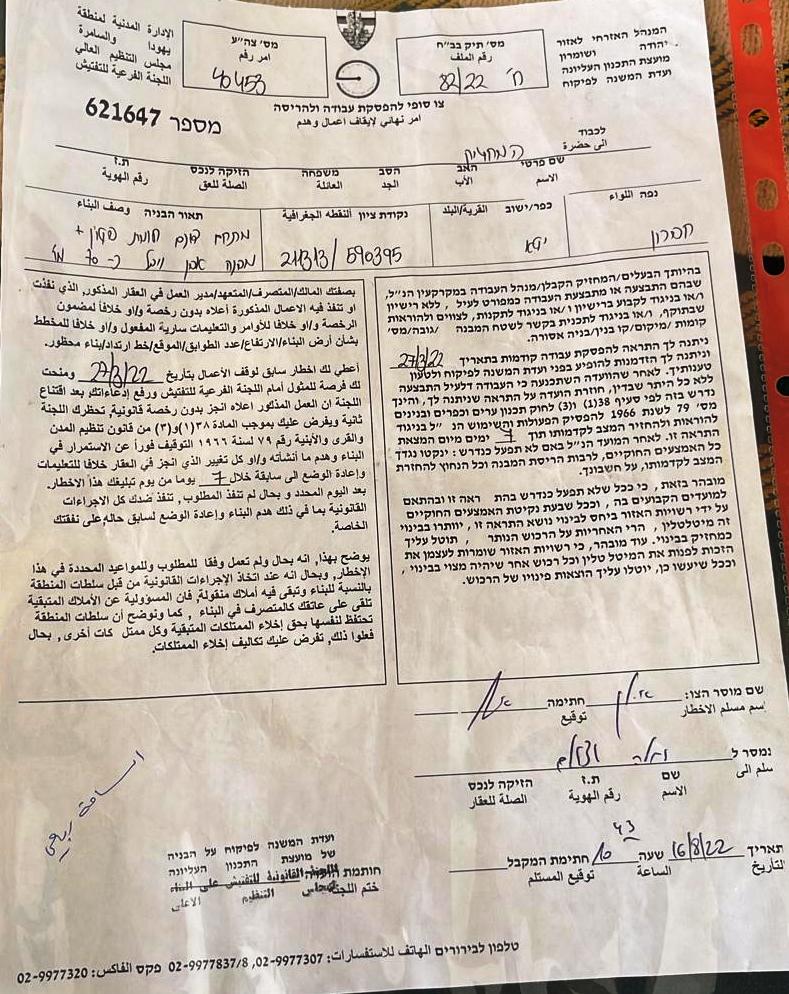 המנהל האזרחי לאזור
יהודה ושומרון
מועצת התכנון העליונה
ועדת המשנה לפיקוח
מס׳ תיק בב״ח
رقم الملف
ח׳ 32/22
מס׳ צה״ע
امر رقم
40453
الإدارة المدنية لمنطقة
يهودا والسامرة
مجلس التنظيم العالي
اللجنة الفرعية للتفتيش
צו סופי להפסקת עבודה ולהריסה
امر نهائي لايقاف اعمال وهدم
מספר 621647
לכבוד
الى حضرة
המחזיק
שם פרטי האב הסב משפחה הזיקה לנכס ת.ז
الاسم الأب الجد العائلة الصلة للعق رقم الهوية
נפה اللواء
כפר/ישוב القرية/البلد
נקודת ציון النقطه الجغرافية
תאור הבניה وصف البناء
חברון
יטא
21313/590395
מבנה אבן
כ- 70 מ׳
בהיותך הבעלים/המחזיק הקבלן/מנהל העבודה במקרקעין הנ״ל,
שבהם התבצעה או מתבצעת העבודה כמפורט לעיל, ללא רישיון
ו/או בניגוד לקבוע ברישיון ו/או בניגוד לתקנות, לצווים ולהוראות
שבתוקף, ו/או בניגוד לתכנית בקשר לשטח המבנה /גובה/מס׳
קומות /מיקום/קו בנין/בניה אסורה.
ניתנה לך התראה להפסקת עבודה קודמות בתאריך 27/3/22
וניתנה לך הזדמנות להופיע בפני ועדת המשנה לפיקוח ולטעון
טענותיך. לאחר שהוועדה השתכנעה כי העבודה דלעיל התבצעה
ללא כל היתר שבדין, חוזרת הועדה על התראה שניתנה לך, והינך
נדרש בזה לפי סעיף 38(1) ו(3) לחוק תכנון ערים וכפרים ובנינים
מס׳ 79 לשנת 1966 להפסיק הפעולות והשימוש הנ״ל בניגוד
להוראות ולהחזיר המצב לקדמותו תוך 7 ימים מיום המצאת
התראה זו. לאחר המועד הנ״ל באם לא תפעל כנדרש: ינקטו נגדך
כל האמצעים החוקיים, לרבות הריסת המבנה וכל הנחוץ להחזרת
המצב לקדמותו, על חשבונך.
מובהר בזאת, כי ככל שלא תפעל כנדרש בהת ראה זו ובהתאם
למועדים הקבועים בה, וככל שבעת נקיטת האמצעים החוקיים
על ידי רשויות האזור ביחס לבינוי נושא התראה זו, יוותרו בבינוי
זה מיטלטלין, הרי האחריות על הרכוש הנותר, תוטל עליך
כמחזיק בבינוי. עוד מובהר, כי רשויות האזור שומרות לעצמן את
הזכות לפנות את המיטל טלין וכל רכוש אחר שיהיה מצוי בבינוי,
וככל שיעשו כן, יוטלו עליך הוצאות פינויו של הרכוש.
بصفتك المالك/المتصرف/المتعهد/مدير العمل في العقار المذكور, الذي نفذت
او تنفذ فيه الاعمال المذكورة اعلاه بدون رخصة و/او خلافاً لمضمون
الرخصة و/او خلافا للأوامر والتعليمات سارية المفعول و/او خلافا للمخطط
بشأن أرض البناء/الارتفاع/عدد الطوابق/الموقع/خط ارتداد/بناء محظور.
أعطي لك اخطار سابق لوقف الأعمال بتاريخ 27/3/22 ومنحت
لك فرصة للمثول أمام اللجنة الفرعية للتفتيش ورفع إدعاءاتك بعد اقتناع
اللجنة ان العمل المذكور اعلاه انجز بدون رخصة قانونية, تحظرك اللجنة
ثانية ويفرض عليك بموجب المادة ٣٨(١)و(٣) من قانون تنظيم المدن
والقرى والأبنية رقم ٧٩ لسنة ١٩٦٦ التوقيف فوراً عن الاستمرار في
البناء وهدم ما أنشأته و/او كل تغيير الذي انجز في العقار خلافا للتعليمات
وإعادة الوضع الى سابقة خلال 7 يوما من يوم تبليغك هذا الاخطار.
بعد اليوم المحدد و بحال لم تنفذ المطلوب, تنفذ ضدك كل الاجراءات
القانونية بما في ذلك هدم البناء وإعادة الوضع لسابق حاله, على نفقتك
الخاصة.
يوضح بهذا, انه بحال ولم تعمل وفقا للمطلوب وللمواعيد المحددة في هذا
الإخطار, وبحال انه عند اتخاذ الإجراءات القانونية من قبل سلطات المنطقة
بالنسبة للبناء وتبقى فيه أملاك منقولة, فان المسؤولية عن الأملاك المتبقية
تلقى على عاتقك كالمتصرف في البناء, كما ونوضح أن سلطات المنطقة
تحتفظ لنفسها بحق إخلاء الممتلكات المتبقية وكل ممتل كات أخرى, بحال
فعلوا ذلك, تفرض عليك تكاليف إخلاء الممتلكات.
שם מוסר הצו: חתימה
اسم مسلم الاخطار توقيع
נמסר ל
سلم الى
שם ת.ז הזיקה לנכס
الاسم رقم الهوية الصلة للعقار
תאריך 16/8/22 שעה 10 43 חתימת המקבל
التاريخ الساعة توقيع المستلم
ועדת המשנה לפיקוח על הבניה
של מועצת התכנון העליונה
اللجنة القانونية للتفتيش على البناء
التنظيم الاعلى
חותמת
ختم اللجنة
טלפון לבירורים الهاتف للاستفسارات: 02-9977307, 02-9977837/8 פקס الفاكس: 02-9977320